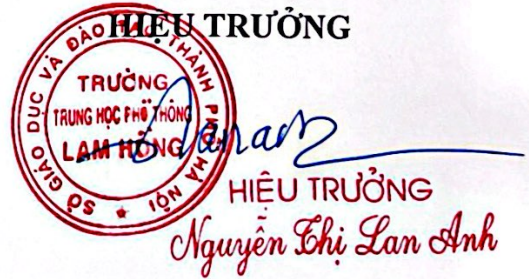 HIỆU TRƯỞNG
SỞ GIÁO DỤC VÀ ĐÀO TẠO THÀNH PHỐ HÀ NỘI
TRƯỜNG
TRUNG HỌC PHỔ THÔNG
LAM HỒNG
HIỆU TRƯỞNG
Nguyễn Thị Lan Anh